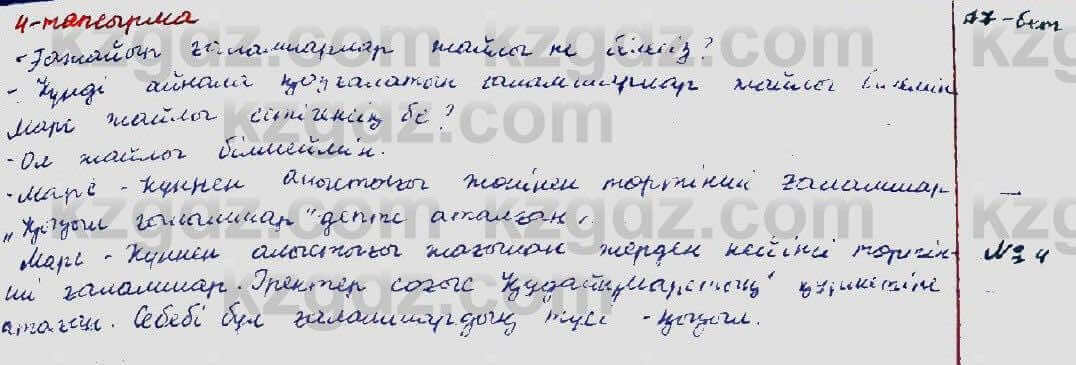 4-тапсырма 77-бет
- Ғажайып ғаламшарлар жайлы не білесіз?
- Күнді айнала қозғалатын ғаламшарлар жайлы білемін
Марс жайлы естігенсің бе?
- Ол жайлы білмеймін.
- Марс - Күннен алыстығы жөнінен төртінші ғаламшар
"Қызыл ғаламшар" деп те аталған.
Марс - Күннен алыстығы жағынан жерден кейінгі төртін- №4
ші ғаламшар. Гректер соғыс Құдайы "Марстың" құрметіне
атаған. Себебі бұл ғаламшардың түсі - қызыл.
kzgdz.com